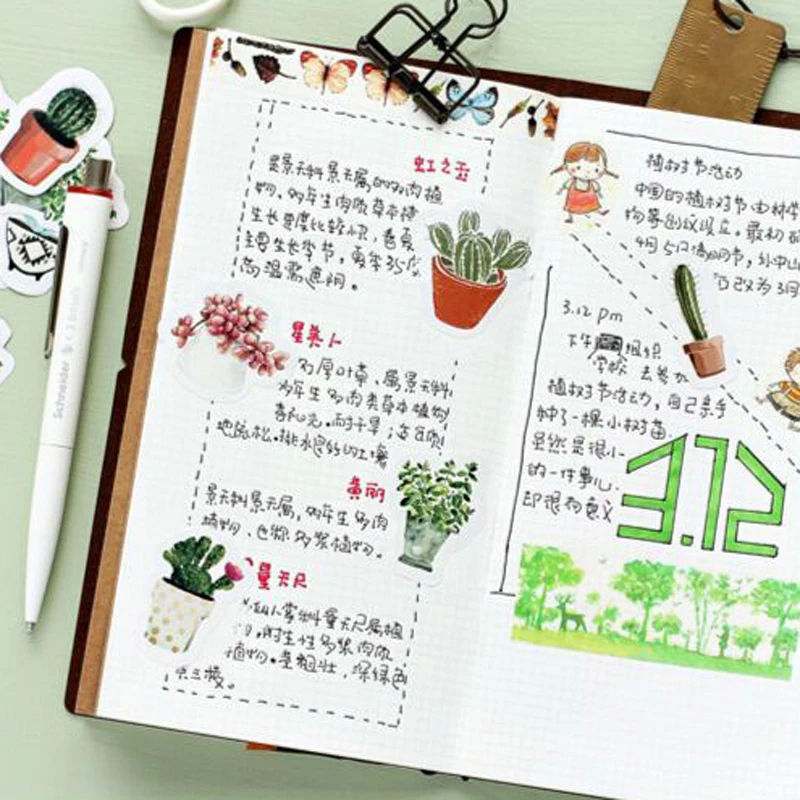 虹之玉
是景天科景天属的多肉植
物、多年生肉质草本植
生长速度比较快，春夏
主要生长季节，夏季35度
高温需遮阴。
星美人
多厚叶草、属景天科
多年生多肉类草本植物
喜礼光.而耐干旱；
地疏松.排水良好的土壤
黄丽
景天科景天属，多年生多肉
植物、也称多浆植物。
量天尺
仙人掌科量天尺属植
.附生性多浆肉质
植物.茎粗壮，深绿色
三棱。
植树节活动
中国的植树节由林学
等倡议设立。最初
4月5日清明节，孙中山
改为3月
3.12 pm
下午 组织
学校 去参加
植树节活动，自己亲手
种了一棵小树苗.
虽然是很小
的一件事儿.
却很有意义
3.12
Schneider